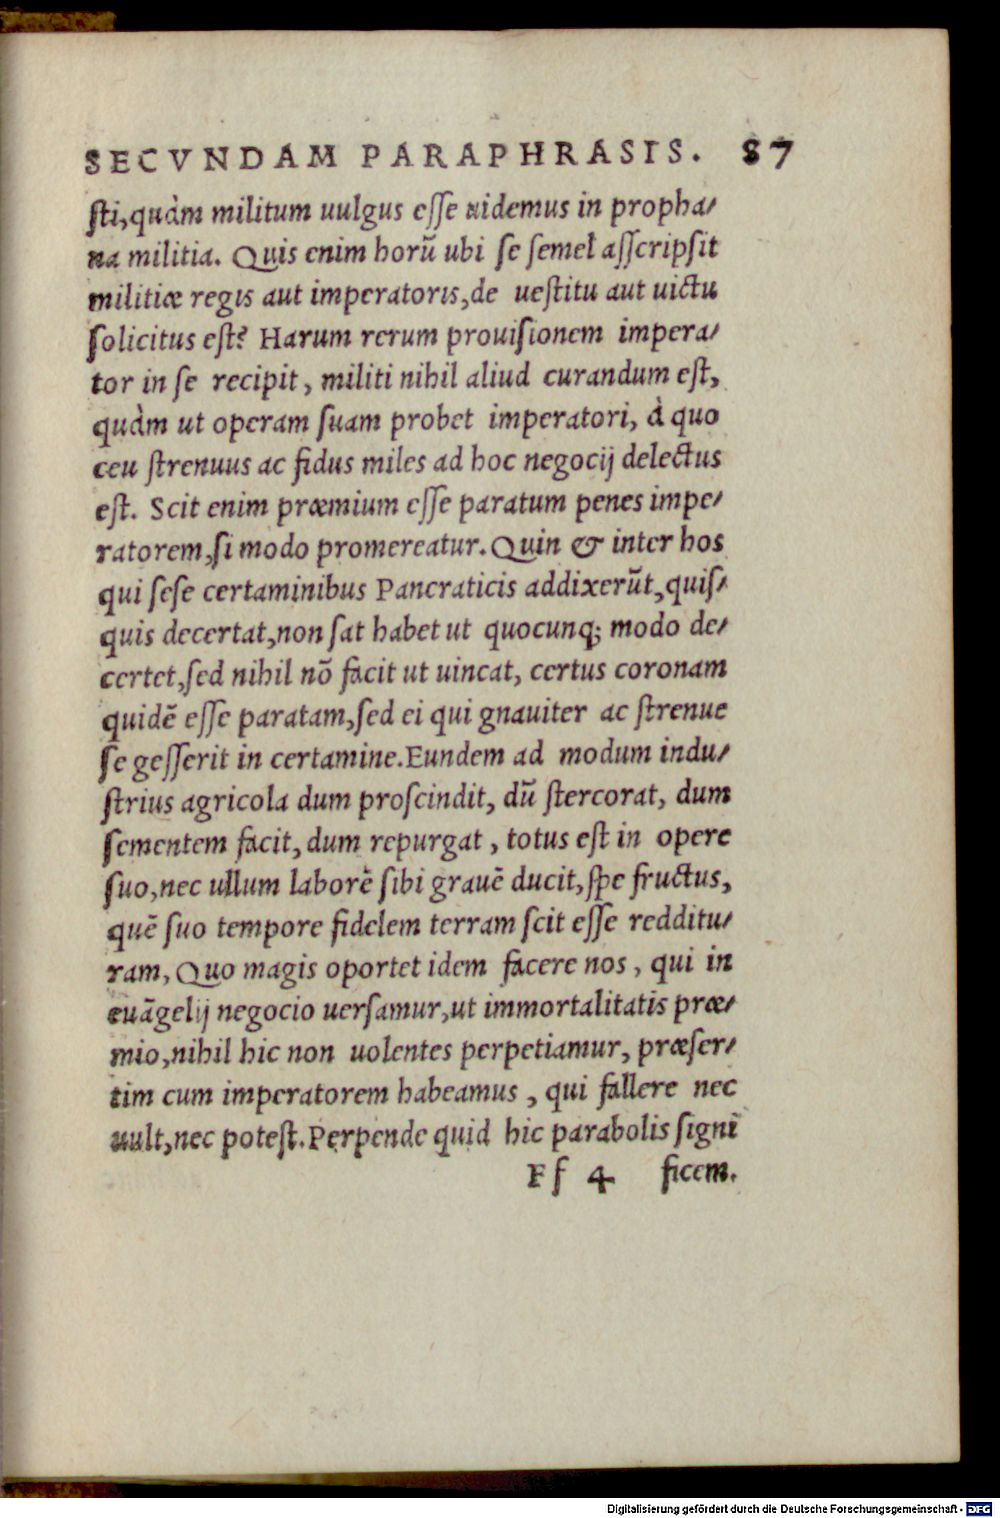 SECVNDAM PARAPHRASIS. 87
sti,quàm militum uulgus esse uidemus in propha/
na militia. Quis enim horũ ubi se semel asscripsit
militiæ regis aut imperatoris,de uestitu aut uictu
solicitus est? Harum rerum prouisionem impera/
tor in se recipit, militi nihil aliud curandum est,
quàm ut operam suam probet imperatori, à quo
ceu strenuus ac fidus miles ad hoc negocij delectus
est. Scit enim præmium esse paratum penes impe/
ratorem,si modo promereatur. Quin & inter hos
qui sese certaminibus Pancraticis addixerũt,quis/
quis decertat,non sat habet ut quocunq; modo de/
certet,sed nihil nõ facit ut uincat, certus coronam
quidẽ esse paratam,sed ei qui gnauiter ac strenue
se gesserit in certamine.Eundem ad modum indu/
strius agricola dum proscindit, dũ stercorat, dum
sementem facit, dum repurgat, totus est in opere
suo,nec ullum laborẽ sibi grauẽ ducit,spe fructus,
quẽ suo tempore fidelem terram scit esse redditu/
ram, Quo magis oportet idem facere nos, qui in
euãgelij negocio uersamur,ut immortalitatis præ/
mio,nihil hic non uolentes perpetiamur, præser/
tim cum imperatorem habeamus, qui fallere nec
uult,nec potest.Perpende quid hic parabolis signi
Ff 4 ficem.
Digitalisierung gefördert durch die Deutsche Forschungsgemeinschaft - DFG